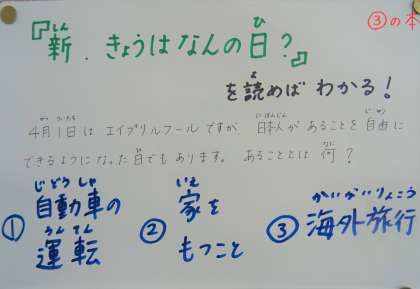 ③の本
『新．きょうはなんの日？』
を読めば わかる！
4月1日は エイプリルフールですが、日本人が あることを 自由に
できるようになった日でもあります。 あることとは 何？
① 自動車の運転
② 家をもつこと
③ 海外旅行